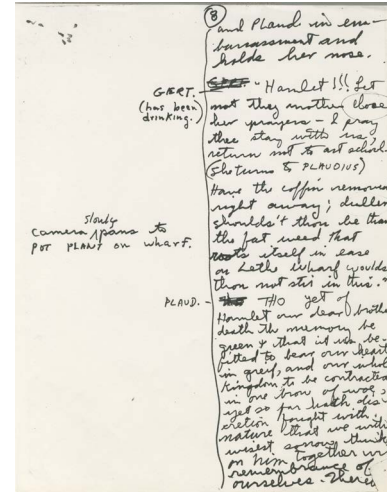 8
and Plaud. in em-
barrassment and
holds her nose.
GERT. "Hamlet!!! Let
(has been
drinking.)
not thy mother close
her prayers - I pray
thee stay with us,
return not to art school.
(She turns to PLAUDIUS)
Have the coffin removed
right away; duller
shouldst thou be than
the fat weed that
roots itself in ease
on Lethe wharf, wouldst
thou not stir in this."
slowly
camera pans to
POT PLANT on wharf.
PLAUD. - THO yet of
Hamlet our dear brother
death the memory be
green & that it us be-
fitted to bear our hearts
in grief, and our whole
kingdom to be contracted
in one brow of woe,
yet so far hath dis-
cretion fought with
nature that we with
wisest sorrow think
on him together w
remembrance of
ourselves.